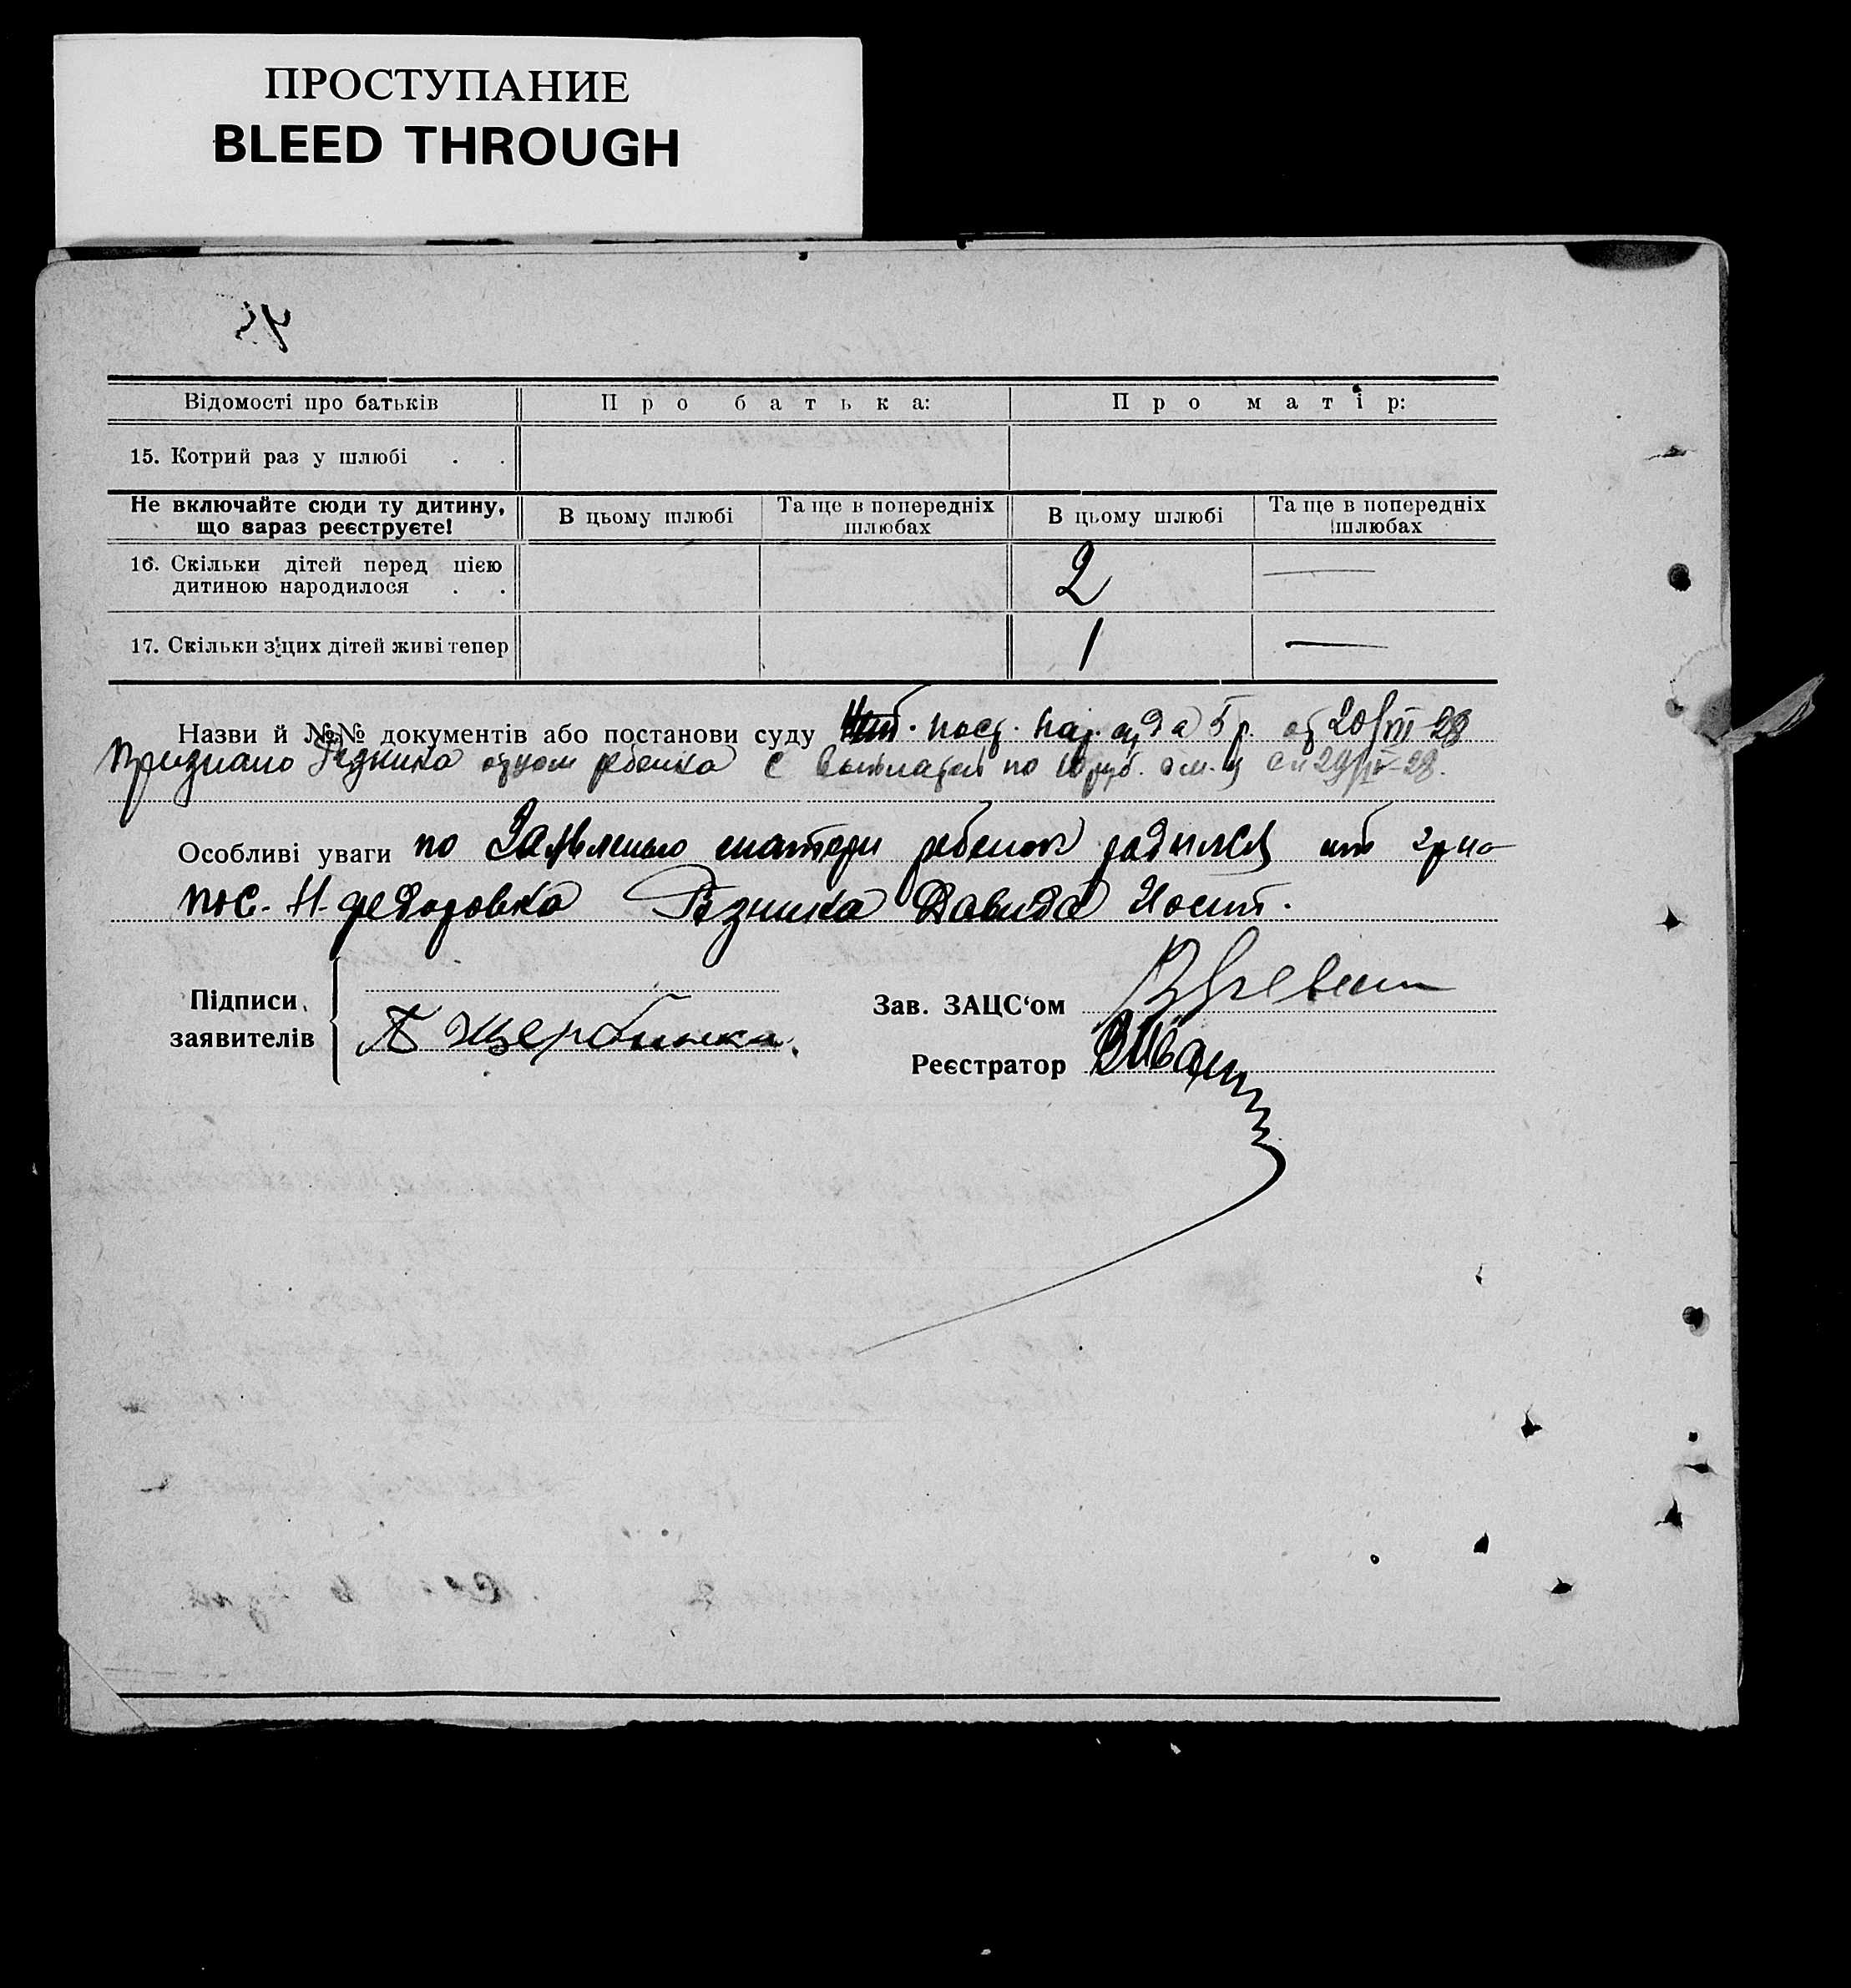 ПРОСТУПАНИЕ
BLEED THROUGH
Відомості про батьків Про батька: Про матір:
15. Котрий раз у шлюбі . .
Не включайте сюди ту дитину, що вараз реєструєте! В цьому шлюбі Та ще в попередніх шлюбах В цьому шлюбі Та ще в попередніх шлюбах
16. Скільки дітей перед цією дитиною народилося . . 2 —
17. Скільки з цих дітей живі тепер 1 —
Назви й №№ документів або постанови суду пост. нар. суда 5 р. от 20/VII-28
признано Резника отцом ребенка с выплатой по 10 руб. в м-ц
Особливі уваги по Заявленью матери ребенок родился от гр-на
пос. Н-Федоровка Резника Давида Иосип.
Підписи заявителів
Щербинка.
Зав. ЗАЦС'ом
Реєстратор